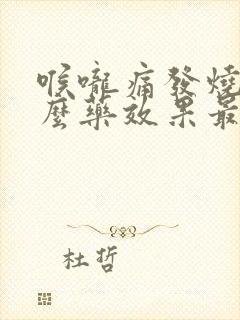 喉嚨痛發燒
麼藥效果最
杜哲